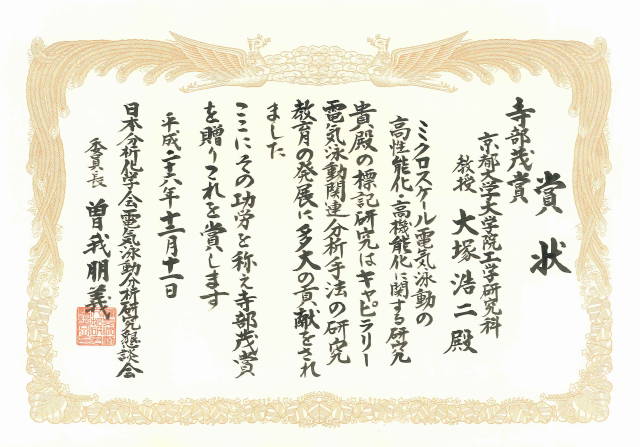 賞状
寺部茂賞
京都大学大学院工学研究科
教授 大塚浩二殿
ミクロスケール電気泳動の
高性能化・高機能化に関する研究
貴殿の標記研究はキャピラリー
電気泳動関連分析手法の研究
教育の発展に多大の貢献をされ
ました
ここにその功労を称え寺部茂賞
を贈りこれを賞します
平成二六年十二月十一日
日本分析化学会電気泳動分析研究懇談会
委員長 曽我朋義